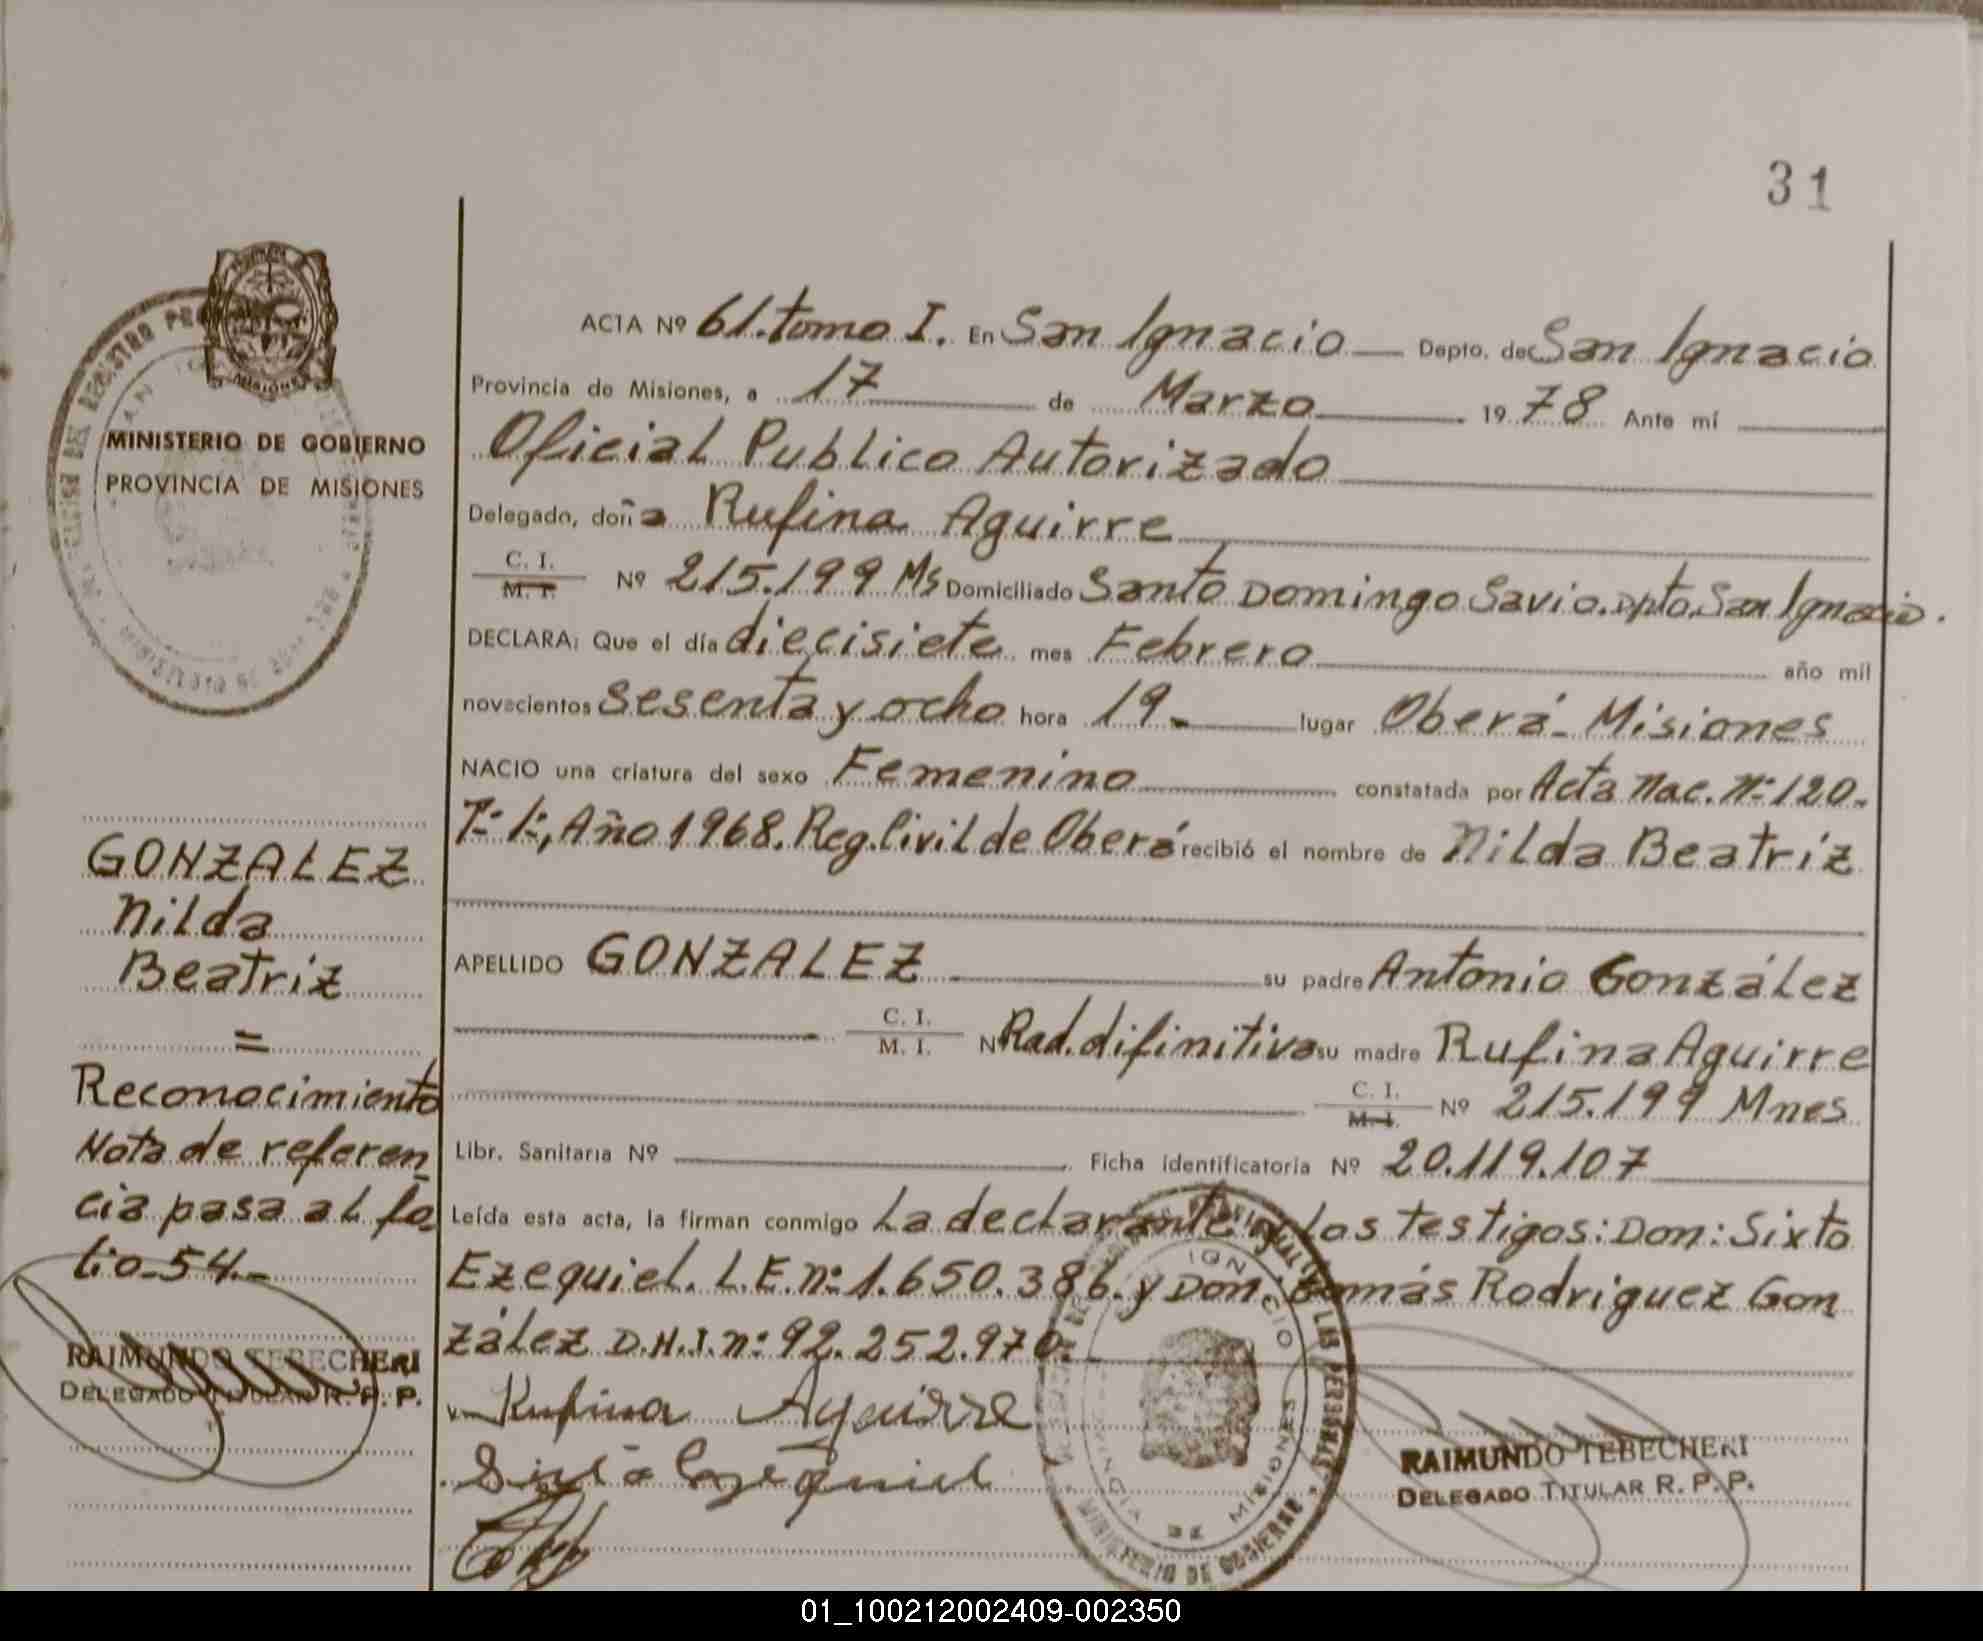 31
ACTA Nº 61. tomo I. En San Ignacio Depto. de San Ignacio
Provincia de Misiones, a 17 de Marzo 1978 Ante mí
Oficial Publico Autorizado
Delegado, doña Rufina Aguirre
C. I.
M. I. Nº 215.199 Ms Domiciliado Santo Domingo Savio. Dpto. San Ignacio.
DECLARA: Que el día diecisiete mes Febrero año mil
novecientos sesenta y ocho hora 19 lugar Oberá - Misiones
NACIO una criatura del sexo Femenino constatada por Acta Nac. Nº 120.
Tº 1º, Año 1968. Reg. Civil de Oberá recibió el nombre de Nilda Beatriz
APELLIDO GONZALEZ su padre Antonio González
C. I.
M. I. N Rad. difinitiva su madre Rufina Aguirre
C. I.
M. I. Nº 215.199 Mnes
Libr. Sanitaria Nº Ficha identificatoria Nº 20.119.107
Leída esta acta, la firman conmigo La declarante y los testigos: Don: Sixto
Ezequiel. L.E. nº 1.650.386. y Don: Tomás Rodriguez Gon
zález D.H.I. nº 92.252.970.
Rufina Aguirre
Sixto Ezequiel
RAIMUNDO TEBECHERI
DELEGADO TITULAR R. P. P.
MINISTERIO DE GOBIERNO
PROVINCIA DE MISIONES
GONZALEZ
Nilda
Beatriz
=
Reconocimiento
Nota de referen
cia pasa al fo
lio - 54.-
RAIMUNDO TEBECHERI
DELEGADO TITULAR R. P. P.
IGNACIO
PROVINCIA DE MISIONES
MINISTERIO DE GOBIERNO
01_100212002409-002350